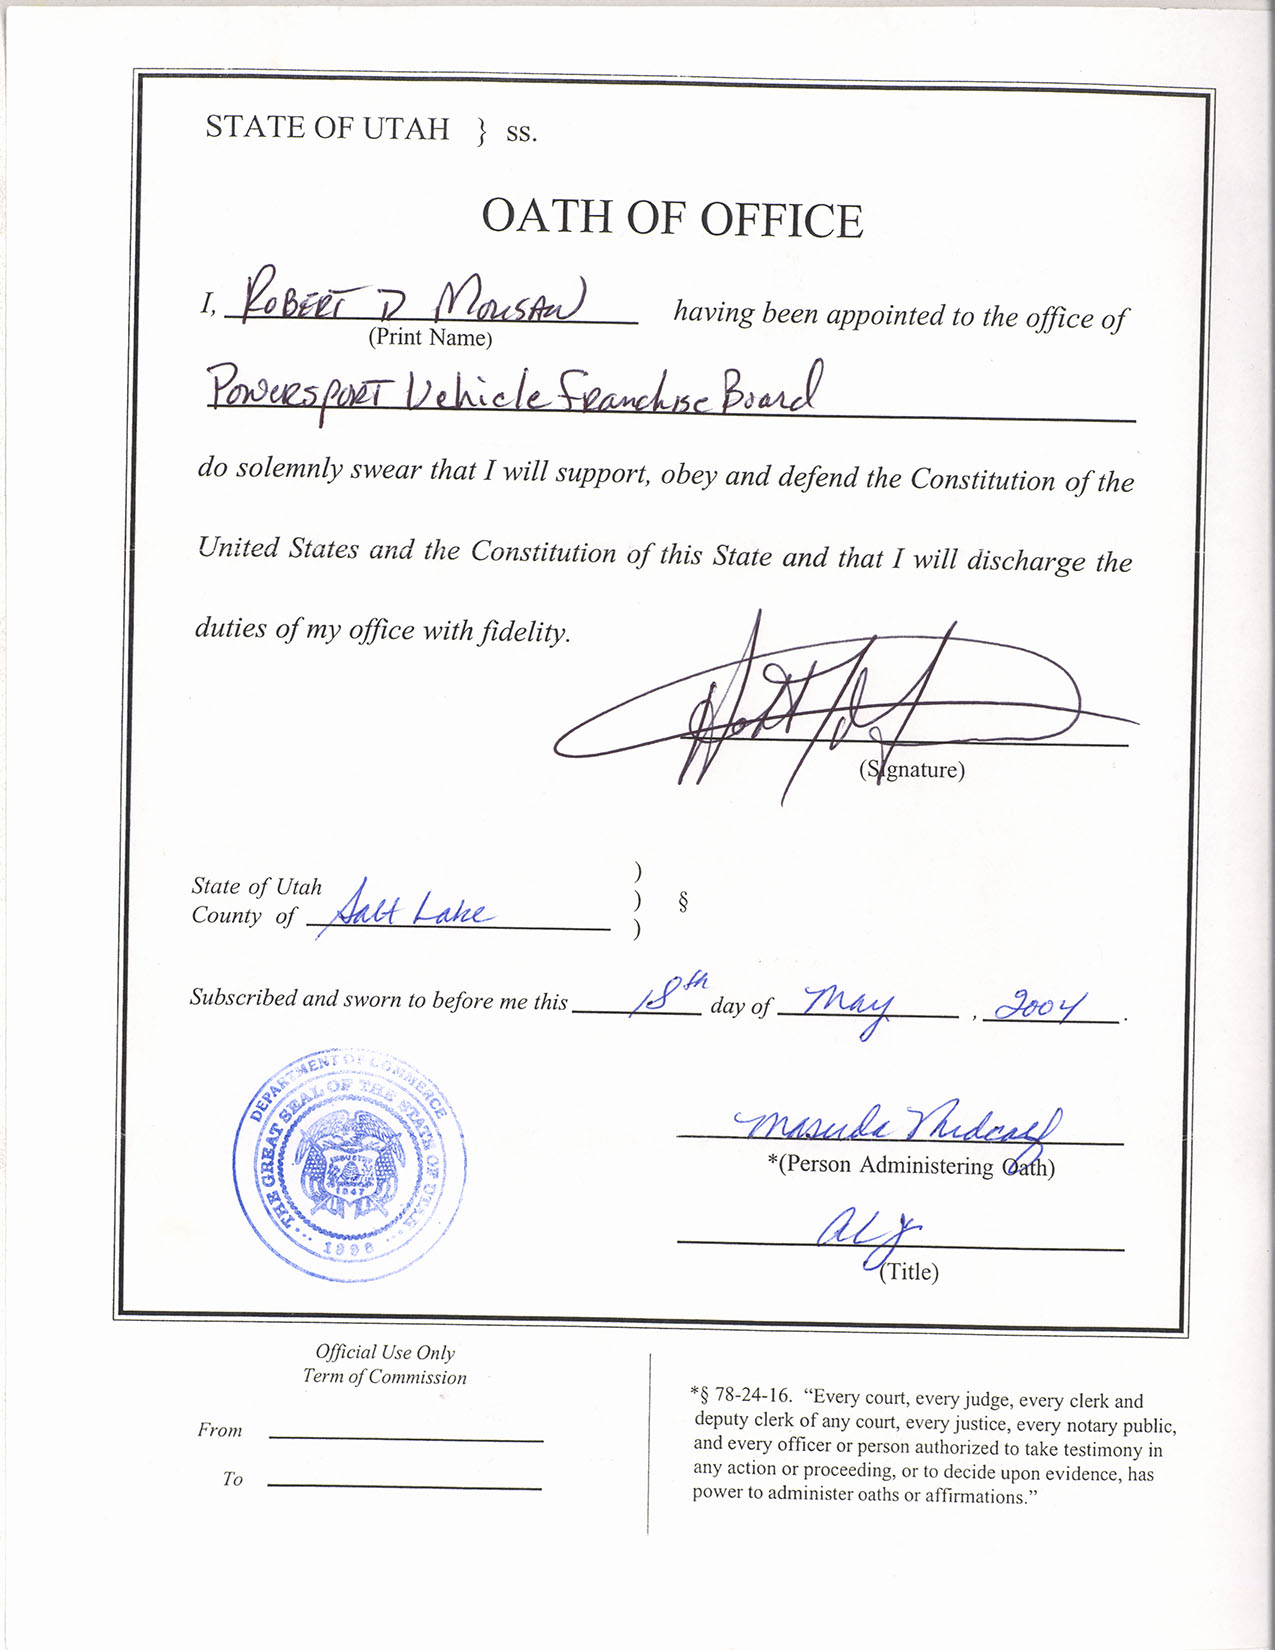 STATE OF UTAH } ss.
OATH OF OFFICE
I, ROBERT D having been appointed to the office of
(Print Name)
Powersport Vehicle Franchise Board
do solemnly swear that I will support, obey and defend the Constitution of the
United States and the Constitution of this State and that I will discharge the
duties of my office with fidelity.
(Signature)
State of Utah )
County of Salt Lake ) §
)
Subscribed and sworn to before me this 18th day of May , 2004 .
DEPARTMENT OF COMMERCE
THE GREAT SEAL OF THE STATE OF UTAH
INDUSTRY
1847
1896
*(Person Administering Oath)
ALJ
(Title)
Official Use Only
Term of Commission
From
To
*§ 78-24-16. “Every court, every judge, every clerk and
deputy clerk of any court, every justice, every notary public,
and every officer or person authorized to take testimony in
any action or proceeding, or to decide upon evidence, has
power to administer oaths or affirmations.”